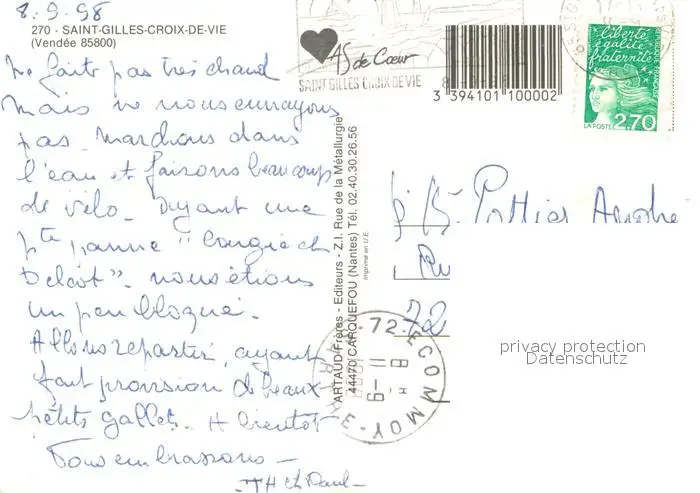 8.9.98
270 - SAINT-GILLES-CROIX-DE-VIE
(Vendée 85800)
Ne faite pas très chaud
Mais ne nous ennuyons
pas. Marchons dans
l'eau et faisons beaucoup
de vélo. Ayant une
pte panne
nous étions
un peu bloqué.
Allons repartir, ayant
fait provision de beaux
petits gallets. A bientôt
Tous embrassons
ARTAUD Frères - Editeurs - Z.I. Rue de la Métallurgie
44470 CARQUEFOU (Nantes) Tél. 02.40.30.26.56
Imprimé en U.E.
AS de Cœur
SAINT GILLES CROIX DE VIE
3 394101 100002
liberté
égalité
fraternité
LA POSTE 2,70
Pottier André
Ru
72
72 ECOMMOY
privacy protection
Datenschutz